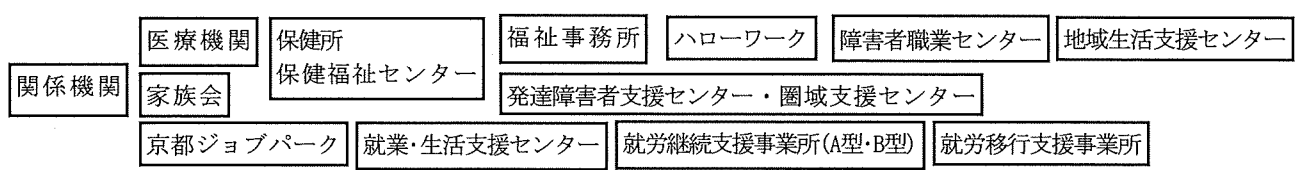 関係機関
医療機関
保健所
保健福祉センター
福祉事務所
ハローワーク
障害者職業センター
地域生活支援センター
家族会
発達障害者支援センター・圏域支援センター
京都ジョブパーク
就業・生活支援センター
就労継続支援事業所(A型・B型)
就労移行支援事業所